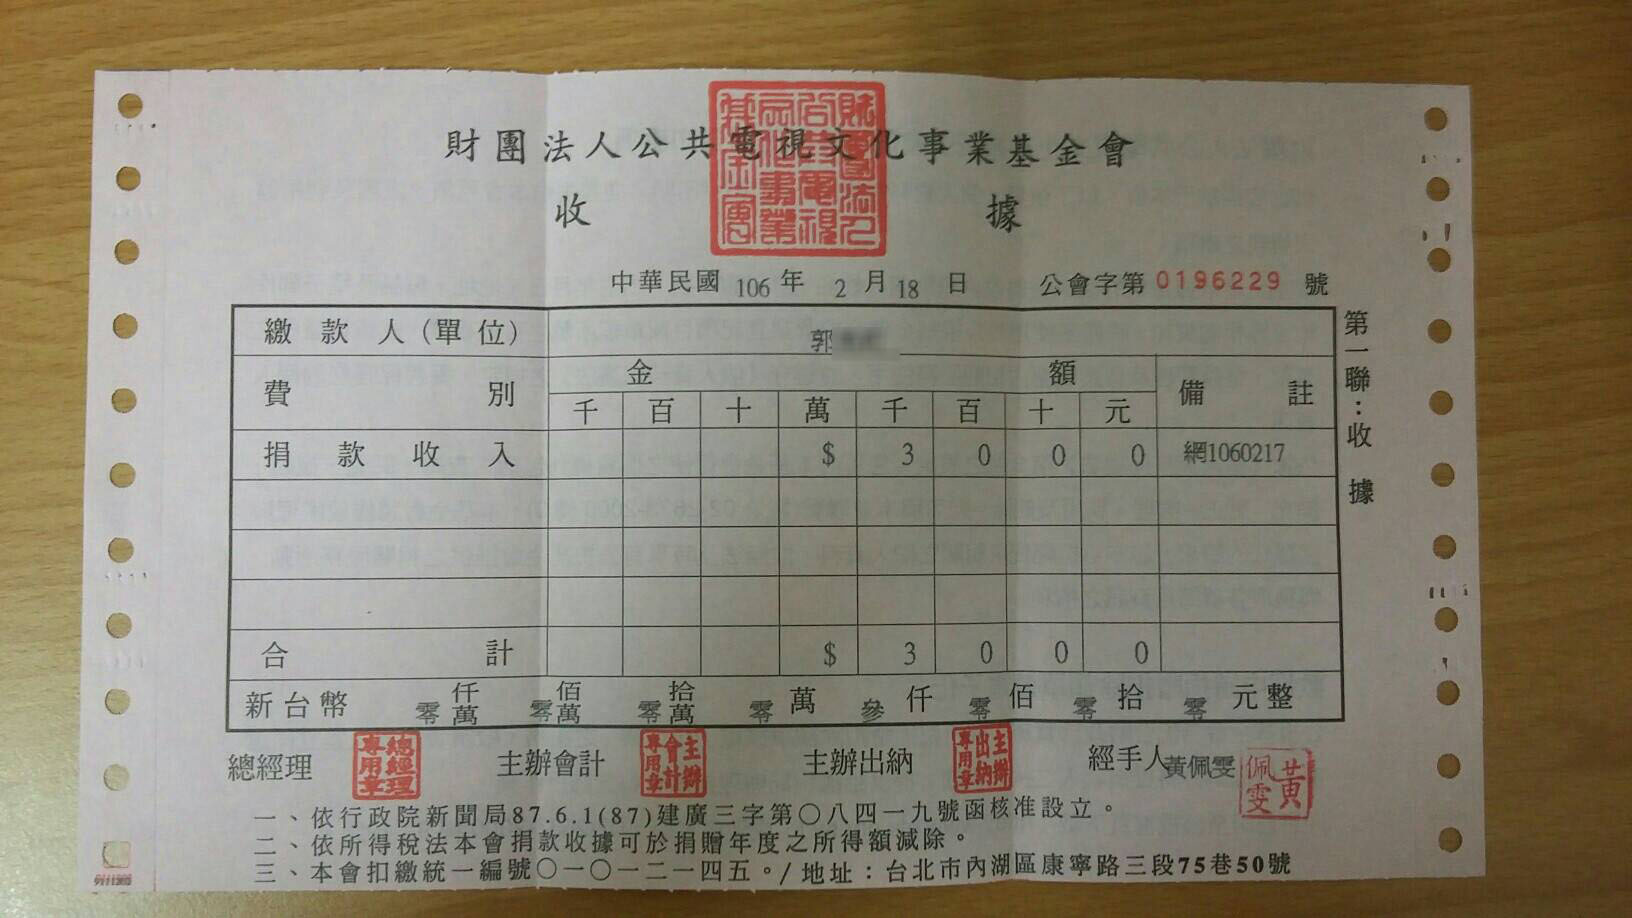 財團法人公共電視文化事業基金會
收據
中華民國 106 年 2 月 18 日 公會字第 0196229 號
繳款人(單位) 郭
費別 金額 備註
千 百 十 萬 千 百 十 元
捐款收入 $ 3 0 0 0 網1060217
合計 $ 3 0 0 0
新台幣 零仟萬 零佰萬 零拾萬 零萬 參仟 零佰 零拾 零元整
第一聯:收據
總經理 總經理專用章 主辦會計 主辦會計專用章 主辦出納 主辦出納專用章 經手人 黃佩雯 黃佩雯
一、依行政院新聞局87.6.1(87)建廣三字第〇八四一九號函核准設立。
二、依所得稅法本會捐款收據可於捐贈年度之所得額減除。
三、本會扣繳統一編號〇一〇一二一四五。/地址:台北市內湖區康寧路三段75巷50號